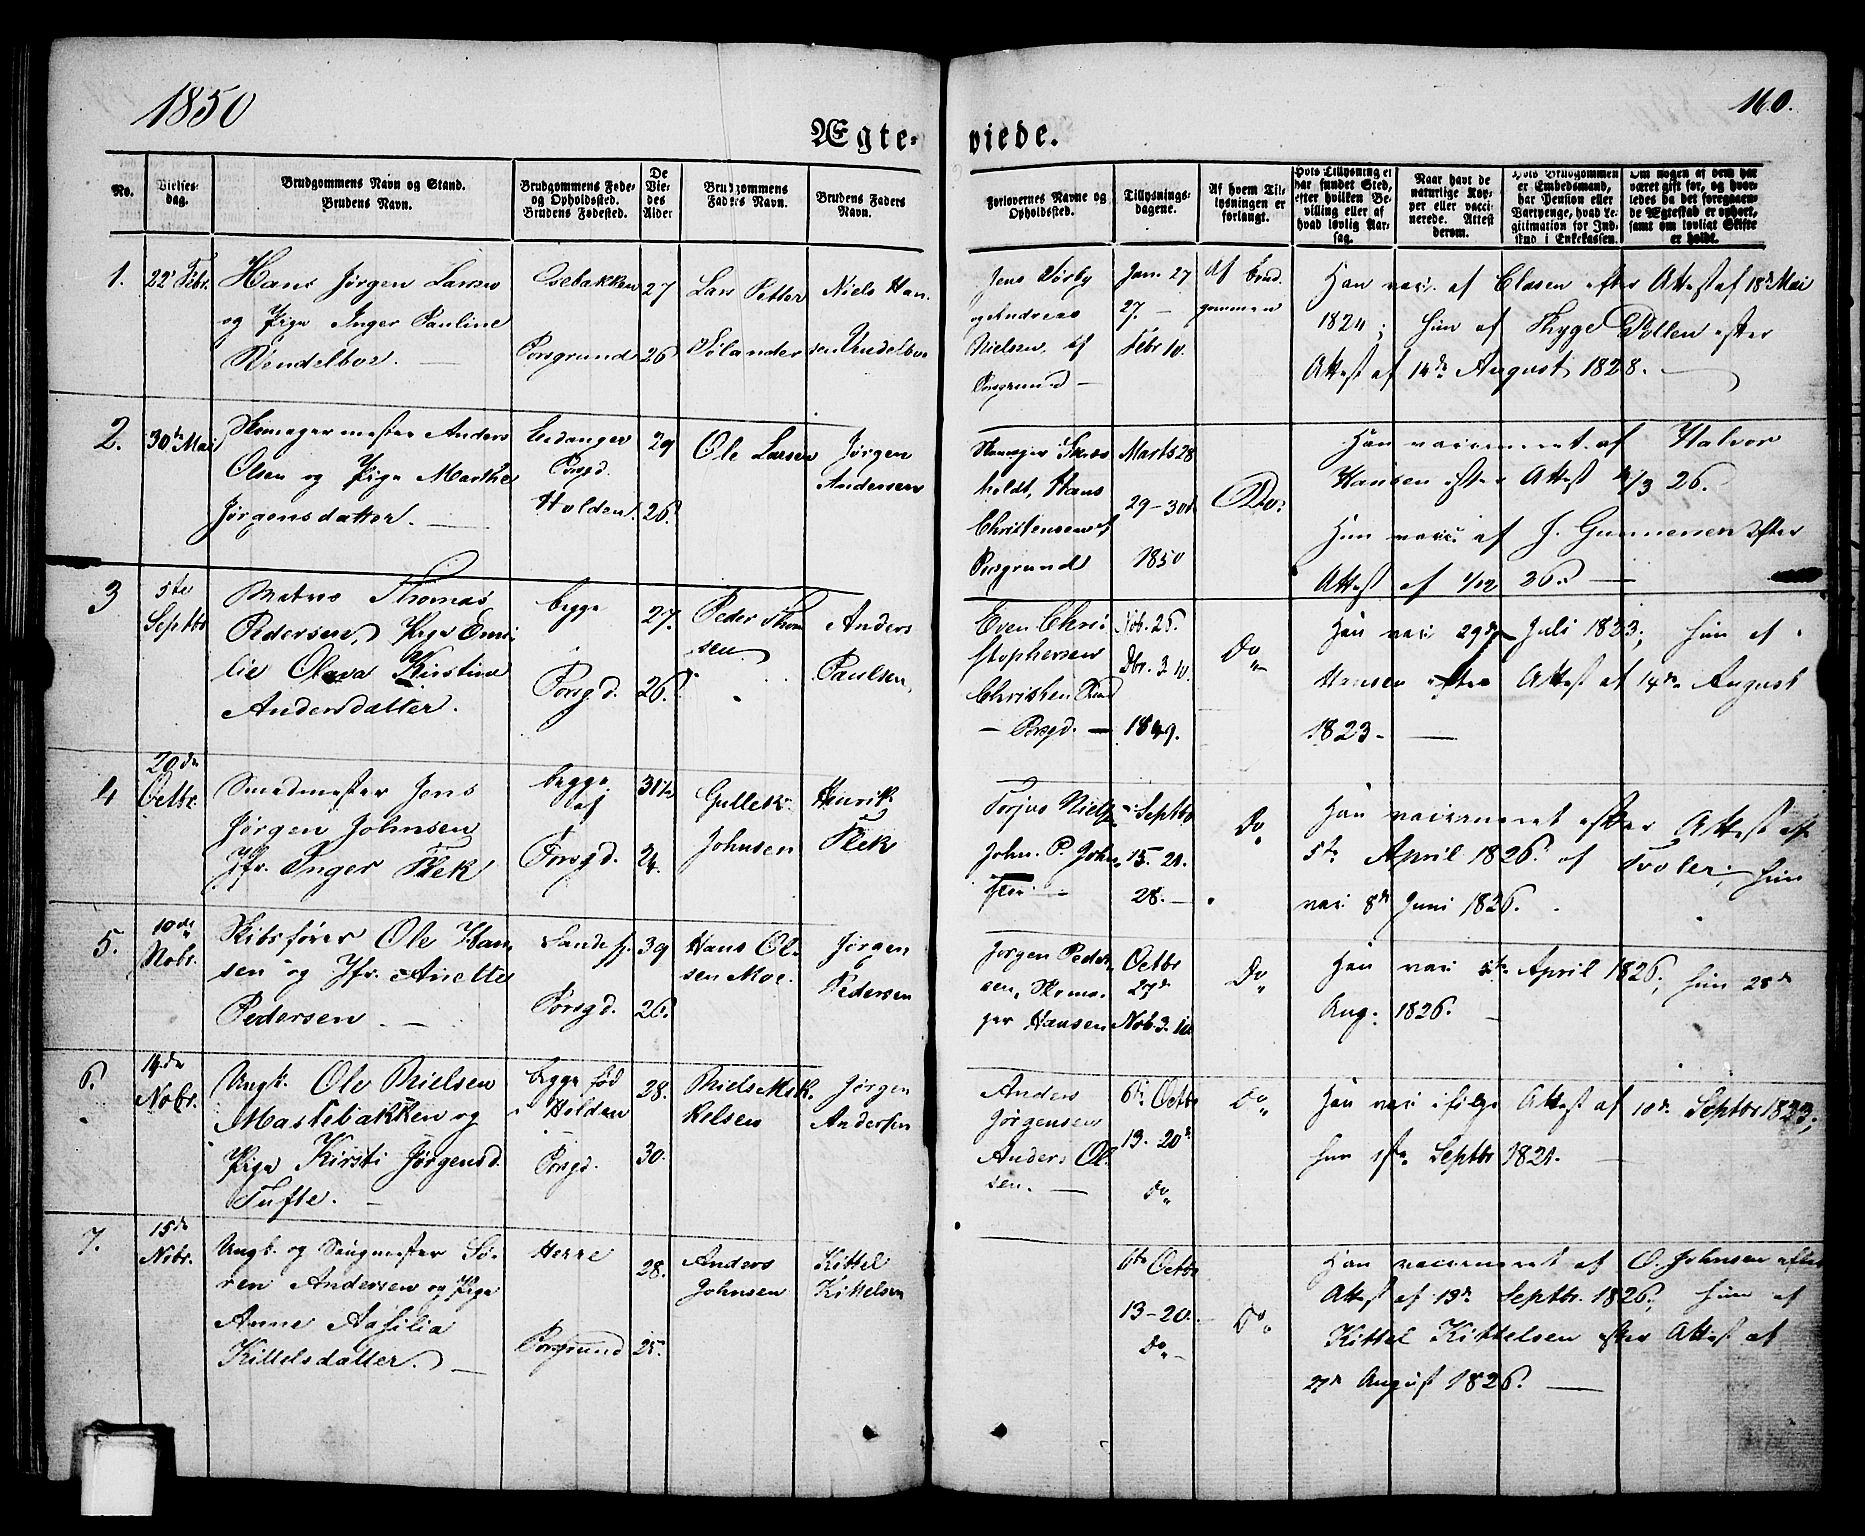 1850
160.
Ægte-viede.
No.
Vielses-dag.
Brudgommens Navn og Stand.
Brudens Navn.
Brudgommens Føde- og Opholdsted.
Brudens Fødested.
De Viedes Alder
Brudgommens Faders Navn.
Brudens Faders Navn.
Forlovernes Navne og Opholdsted.
Tillysnings-dagene.
Af hvem Tillysningen er forlangt.
Hvis Tillysning ei har fundet Sted, efter hvilken Bevilling eller af hvad lovlig Aarsag.
Naar havt de naturlige Kopper eller vaccinerede. Attest derom.
Hvis Brudgommen er Embedsmand, har Pension eller Vartpenge, hvad Legitimation for Indskud i Enkekassen.
Om nogen af dem har været gift før, og hvorledes da det foregaaende Ægtestad er ophørt, samt om lovligt Skifte er holdt.
1.
22 Febr.
Hans Jørgen Larsen
og Pige Inger Pauline
Vendelboe. —
Osebakken
Porsgrund
27
26
Lars Petter
Niels Han-
sen Vendelboe
Jens
og Andreas
Nielsen, af
Porsgrund —
Jan. 27
27. —
Febr 10.
af Brud-
gommen
Han vacc. af Clasen efter Attest af 18de Mai
1824; hun af Thyge Pollen efter
Attest af 14de August 1828. —
2.
30te Mai
Skomagermester Anders
Olsen og Pige Marthe
Jørgensdatter. —
Eidanger
Porsgd.
Holden.
29
26.
Ole Larsen
Jørgen
Andersen
Skomager
holdt, Hans
Christensen af
Porsgrund
Marts 28
29 - 30te
1850
Do.
Han vaccineret af Halvor
Hansen efter Attest /3 26.
Hun vacc. af J. Gunnersen efter
Attest af 1/12 26. —
3
5te
Septbr
Matros Thomas
Pedersen, Pige Emi-
lie Olava Kirstine
Andersdatter.
begge
Porsgd.
27.
26.
Peder Thom
sen.
Anders
Paulsen,
Even Chri-
stophersen
Christen
— Porsgd. —
Nob. 25.
Dbr. 3 10.
1849.
Do
Han vacc 29de Juli 1833; hun af
Hansen efter Attest af 14de August
1823. —
4
20de
Octbr.
Smedmester Jens
Jørgen Johnsen
Jfr. Inger Flek
begge
af
Porsgd.
30½
24.
Gullek
Johnsen
Henrik
Flek
Torjus Niels
John. P. John-
sen. —
Septbr
15. 21.
28. —
Do
Han vaccineret efter Attest af
5te April 1826. af Tvoler; hun
vac: 8de Juni 1826.
5.
10de
Nobr.
Skibsfører Ole Han-
sen og Jfr. Anette
Pedersen —
Sandefj.
Porsgd.
39
26.
Hans Ol-
sen Moe.
Jørgen
Pedersen
Jørgen Peder-
sen, Skoma-
ger Hansen
Octbr
27de
Nob. 3. 10
Do
Han vac: 5te April 1826; hun 28de
Aug: 1826. —
6.
14de
Nobr.
Ungk. Ole Nielsen
Mastebakken og
Pige Kirsti Jørgensd.
Tufte. —
begge fød
i Holden
Porsgd.
28.
30.
Niels Mik-
kelsen
Jørgen
Andersen
Anders
Jørgensen
Anders Ol-
sen. —
6te Octbr
13. 20de
Do
Do
Han vac: ifølge Attest af 10de Septbr 1823;
hun 1ste Septbr 1821. —
7.
15de
Nobr.
Ungk. og Saugmester Sø-
ren Andersen og Pige
Anne Aasilia
Kittelsdatter. —
Herre
Porsgrund
28.
25.
Anders
Johnsen
Kittel
Kittelsen
6te Octbr
13-20.
Do —
Do
Han vaccineret af O. Johnsen efter
Attest af 13de Septbr. 1826; hun af
Kittel Kittelsen efter Attest af
27de August 1826. —